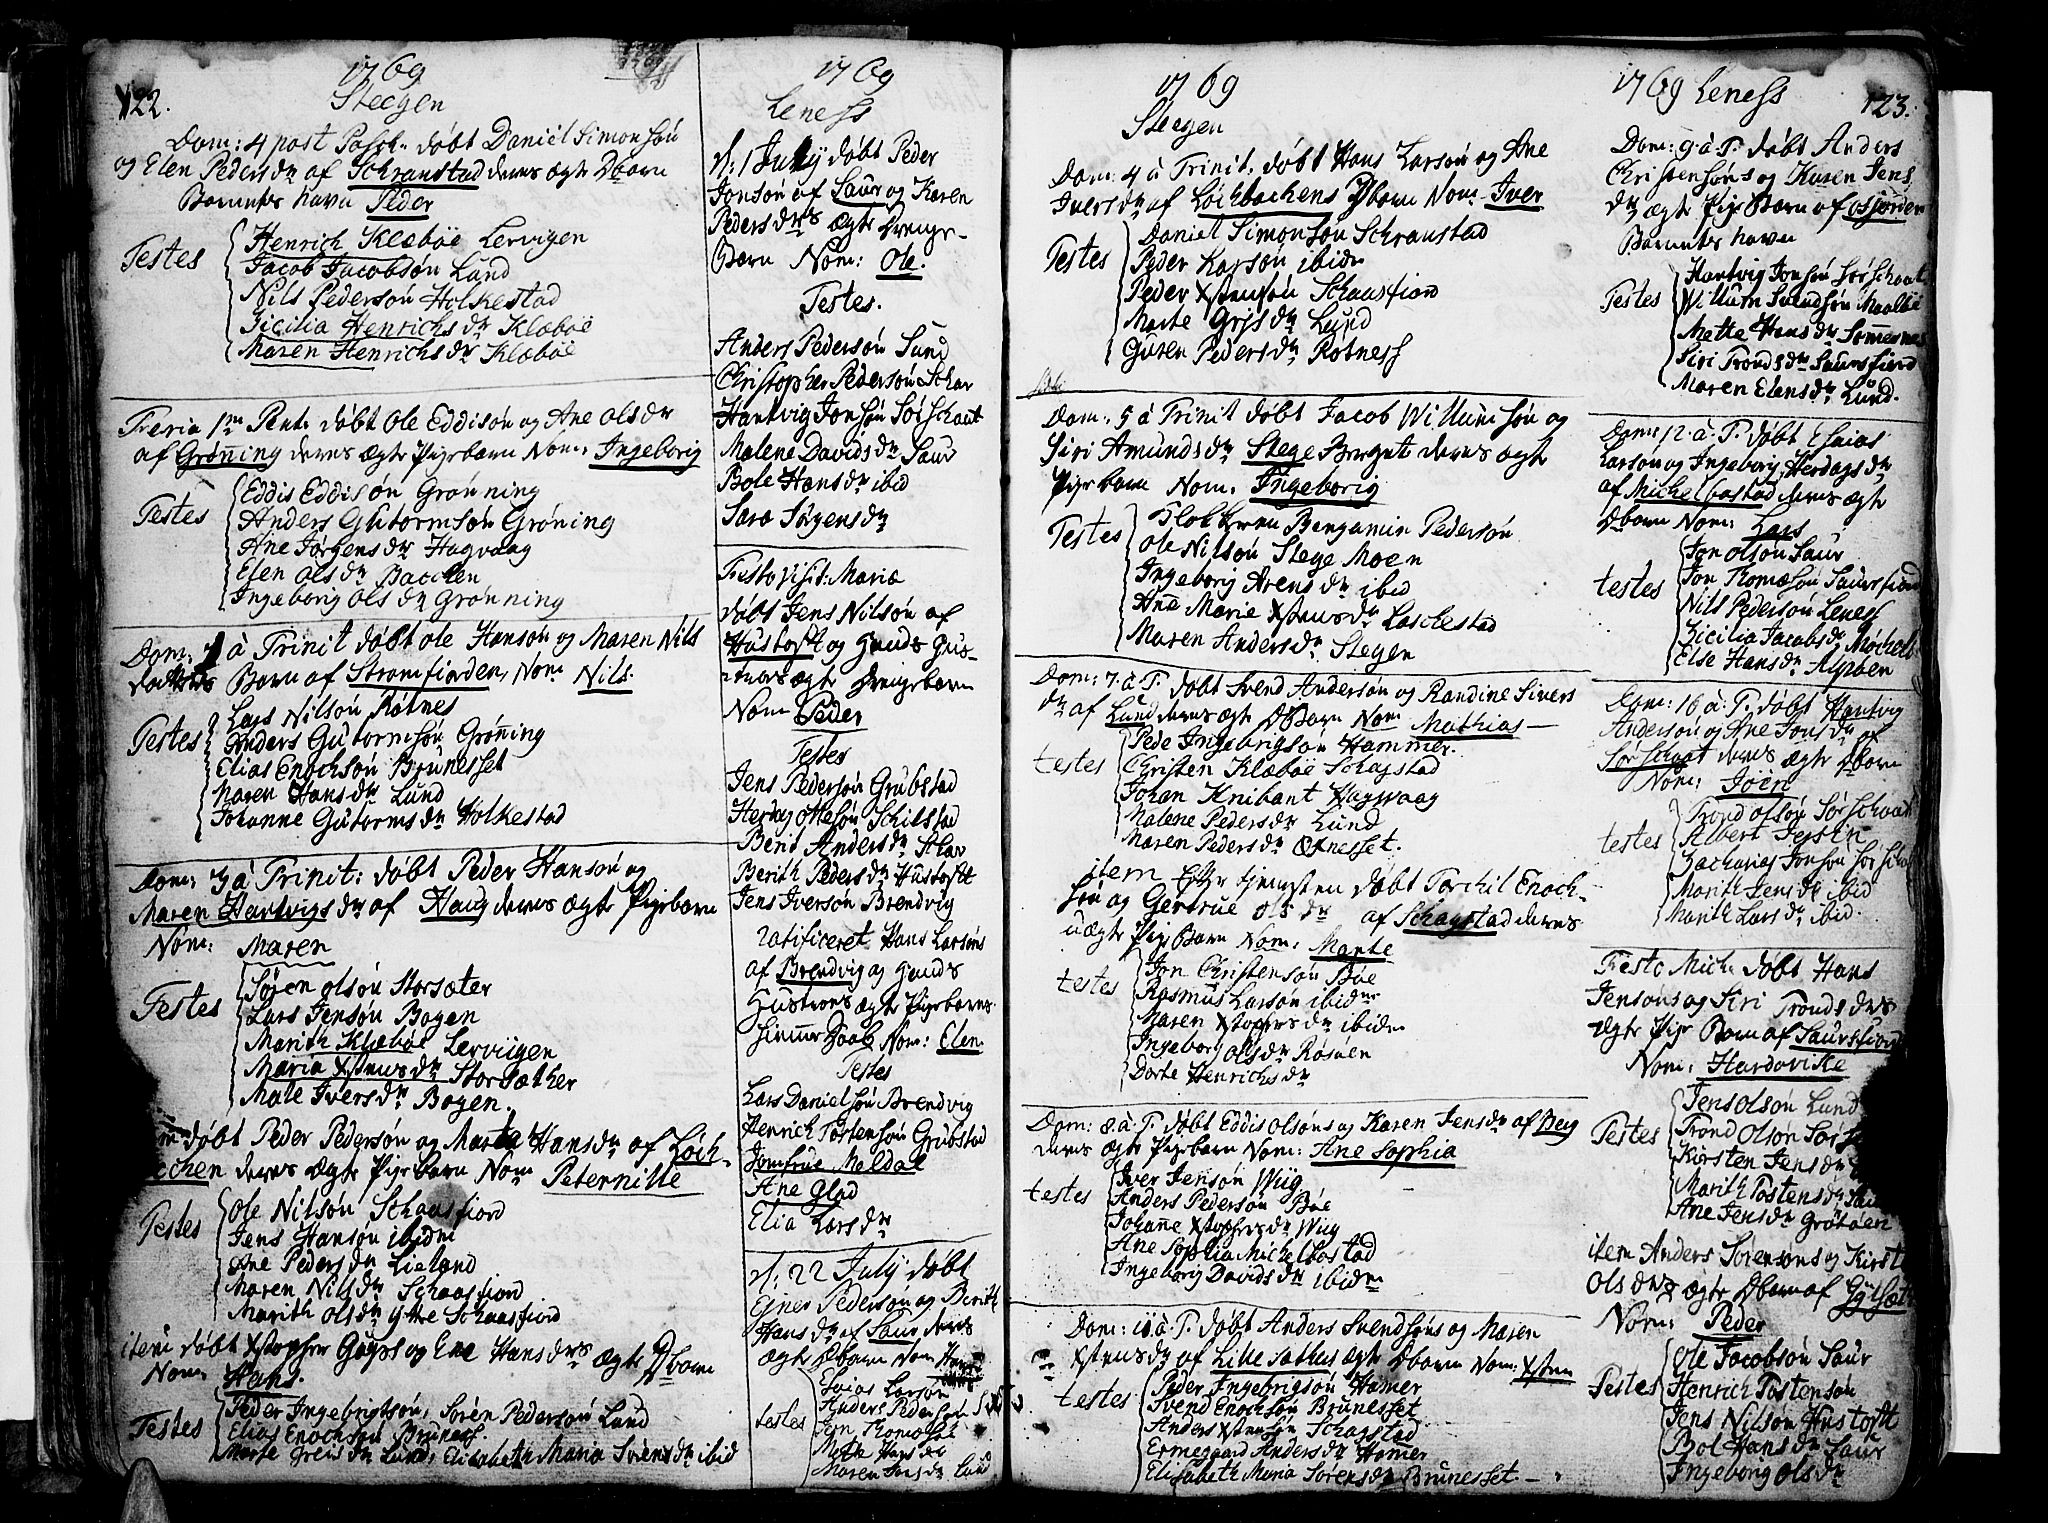 122.
1769
Steegen
Dom: 4 post Pasch. døbt Daniel Simonsøn
og Elen Pedersdr af Schranstad deres ægte Dbarn
Barnets havn Peder
Testes
Henrich Klæbøe Lervigen
Jacob Jacobsøn Lund
Nils Pedersøn Holkestad
Sicilia Henrichsdr Klæbøe
Maren Henrichsdr Klæbøe
Feria 1me Pent. døbt Ole Eddisøn og Ane Olsdr
af Grønning deres ægte Pigebarn Nom: Ingeborig
Testes
Eddis Eddisøn Grønning
Anders Gutormsøn Grøning
Ane Jørgensdr Hagvaag
Elen Olsdr Bacchen
Ingeborig Olsdr Grønning
Dom: à Trinit døbt Ole Hansøn og Maren Nils
Barn af Stromfiorden, Nom Nils.
Testes
Lars Nilsøn Røtnes
Anders Gutormsøn Grøning
Elias Enochsøn Brunesset
Maren Hansdr Lund
Johanne Gutormsdr Holkestad
Dom: 3 à Trinit: døbt Peder Hansøn og
Maren Hartvigsdr af Haug deres ægte Pigebarn
Nom: Maren
Testes
Søren Olsøn Storsæter
Lars Jensøn Bogen
Marith Klæbøe Lerviigen
Maria Xstensdr Storsæther
Male Iversdr Bogen.
døbt Peder Pedersøn og Marta Hansdr af Løch-
bachen deres ægte Pigebarn Nom Peternille
Testes
Ole Nilsøn Schaasfiord
Jens Hansøn ibidem
Ane Pedersdr Lieland
Maren Nilsdr Schaasfiord
Marith Olsdr yttre Schaasfiord
item døbt Xstopher og Ene Hansdrs ægte Dbarn
Nom: Hans.
Testes
Peder Ingebrigtsøn, Søren Pedersøn Lund
Elias Enochsøn Bruness.
Marte Lund, Elisabeth Maria Sørensdr ibid
1769
Leness
d: 1 July døbt Peder
Jonsøn af Saur og Karen
Pedersdrs ægte Drenge-
Barn Nom: Ole.
Testes.
Anders Pedersøn Lund
Christopher Pedersøn Schar
Hartvig Jonsøn Sørschaat
Malene Davidsdr Saur
Bole Hansdr ibid
Sara Sørgensdr
Festo Visit: Mariæ
døbt Jens Nilsøn af
Hustoft og hands Hus-
trues ægte Drengebarn
Nom Peder
Testes
Jens Pedersøn Grubstad
Herdag Ottesøn Schilstad
Berit Andersdr Schar
Berith Pedersdr Hustoftt
Jens Iversøn Brendvig
ratificeret Hans Larsøns
af Brendvig og hands
Hustroes ægte Pigebarns
hiemmedaab Nom: Elen
Testes
Lars Danielsøn Brendvig
Henrich Tostensøn Grubstad
Jomfrue Meldal
Ane Glad
Elia Larsdr
d: 22 July døbt
Ejner Pedersøn og Berith
Hansdr af Saur deres
ægte Dbarn Nom Hans
testes
Esaias Larsøn
Anders Pedersøn
Jon Thomasøn
Mette Hansdr
Maren Lund
1769
Steegen
Dom: 4 à Trinit. døbt Hans Larsøn og Ane
Iversdr af Løchbachens Dbarn Nom. Iver
Testes
Daniel Simonsøn Schranstad
Peder Larsøn ibidm
Peder Xstensøn Schaasfiord
Marte Grisdr Lund
Guren Pedersdr Røtness
Dom: 5 à Trinit døbt Jacob Willumsøn og
Siri Amundsdr Stege Berget deres ægte
Pigebarn Nom: Ingeborig
Testes
Klokkeren Bengamin Pedersøn
Ole Nilsøn Stege Moen
Ingeborig Arensdr ibid
Ane Marie Xstensdr Laschestad
Maren Andersdr Stegen
Dom: 7. à T. døbt Svend Andersøn og Randine Sivers
dr af Lund deres ægte DBarn Nom Mathias
testes
Pede Ingebrigsøn Hammer.
Christen Klæbøe Schagstad
Johan Knibant Hagwaag
Malene Pedersdr Lund
Maren Pedersdr Øxnesset.
item efter tjenesten døbt Torchil Enoch-
søn og Gertrue Olsdr af Schagstad deres
uægte PigeBarn Nom: Marte
testes
Jon Christensøn Bøe
Rasmus Larsøn ibidm
Maren Xstophersdr ibidm
Ingeborg Olsdr Røsøen
Dorte Henrichsdr
Dom: 8. à T. døbt Eddis Olsøns og Karen Jensdr af Berg
deres ægte Pigebarn Nom: Ane Sophia
testes
Iver Jensøn Wiig
Anders Pedersøn Bøe
Johane Xstophersdr Wiig
Ane Sophia Michelbostad
Ingeborig Davidsdr ibidm
Dom: 11 à T. døbt Anders Svendsøns og Maren
Xstensdr af Lille Sathus ægte Dbarn Nom: Xsten
testes
Peder Ingebrigsøn Hamer
Svend Enochsøn Brunesset
Anders Xstensøn Schagstad
Ermegaard Andersdr Hamer
Elisabeth Maria Sørensdr Brunesset
1769 Leness
123.
Dom: 9 à T. døbt Anders
Christensøns og Karen Jens
dr ægte Pige Barn af Osjorden
Barnets havn
Testes
Hartvig Jonsøn Sørschaat
Willum Svendsøn Maalbøe
Mette Hansdr Sommesnes
Siri Trondsdr Saursfiord
Maren Elensdr Lund.
Dom: 12. à. T. døbt Esaias
Larsøn og Ingeborg Herdagsdr
af Michelbostad deres ægte
Dbarn Nom: Lars
testes
Jon Olsøn Saur
Jon Thomæsøn Saursfiord
Nils Pedersøn Leness
Zicilia Jacobsdr Michelb
Else Hansdr Alpøen
Dom: 16 à. T. døbt Hartvig
Andersøn og Ane Jonsdr af
Sørschaat deres ægte Dbarn
Nom: Joen
testes
Trond Olsøn Sørschaat
Albert
Zacharias Jonsøn Sørscha
Marith Jensdr ibid
Marith Larsdr ibid.
Festo Mich. døbt Hans
Jensøns og Siri Trondsdrs
ægte Pige Barn af Saursfiord
Nom: Hardovike
Testes
Jens Olsøn Lund
Trond Olsøn Sørs
Kirsten Jensdr
Marith Tostensdr
Ane Jensdr Grøtøen
item Anders Sørensøns og Kirst
Olsdrs ægte Dbarn af
Nom: Peder
Testes
Ole Jacobsøn Saur
Henrich Tostensøn
Jens Nilsøn Hustoftt
Bol Hansdr Saur
Ingeborig Olsdr